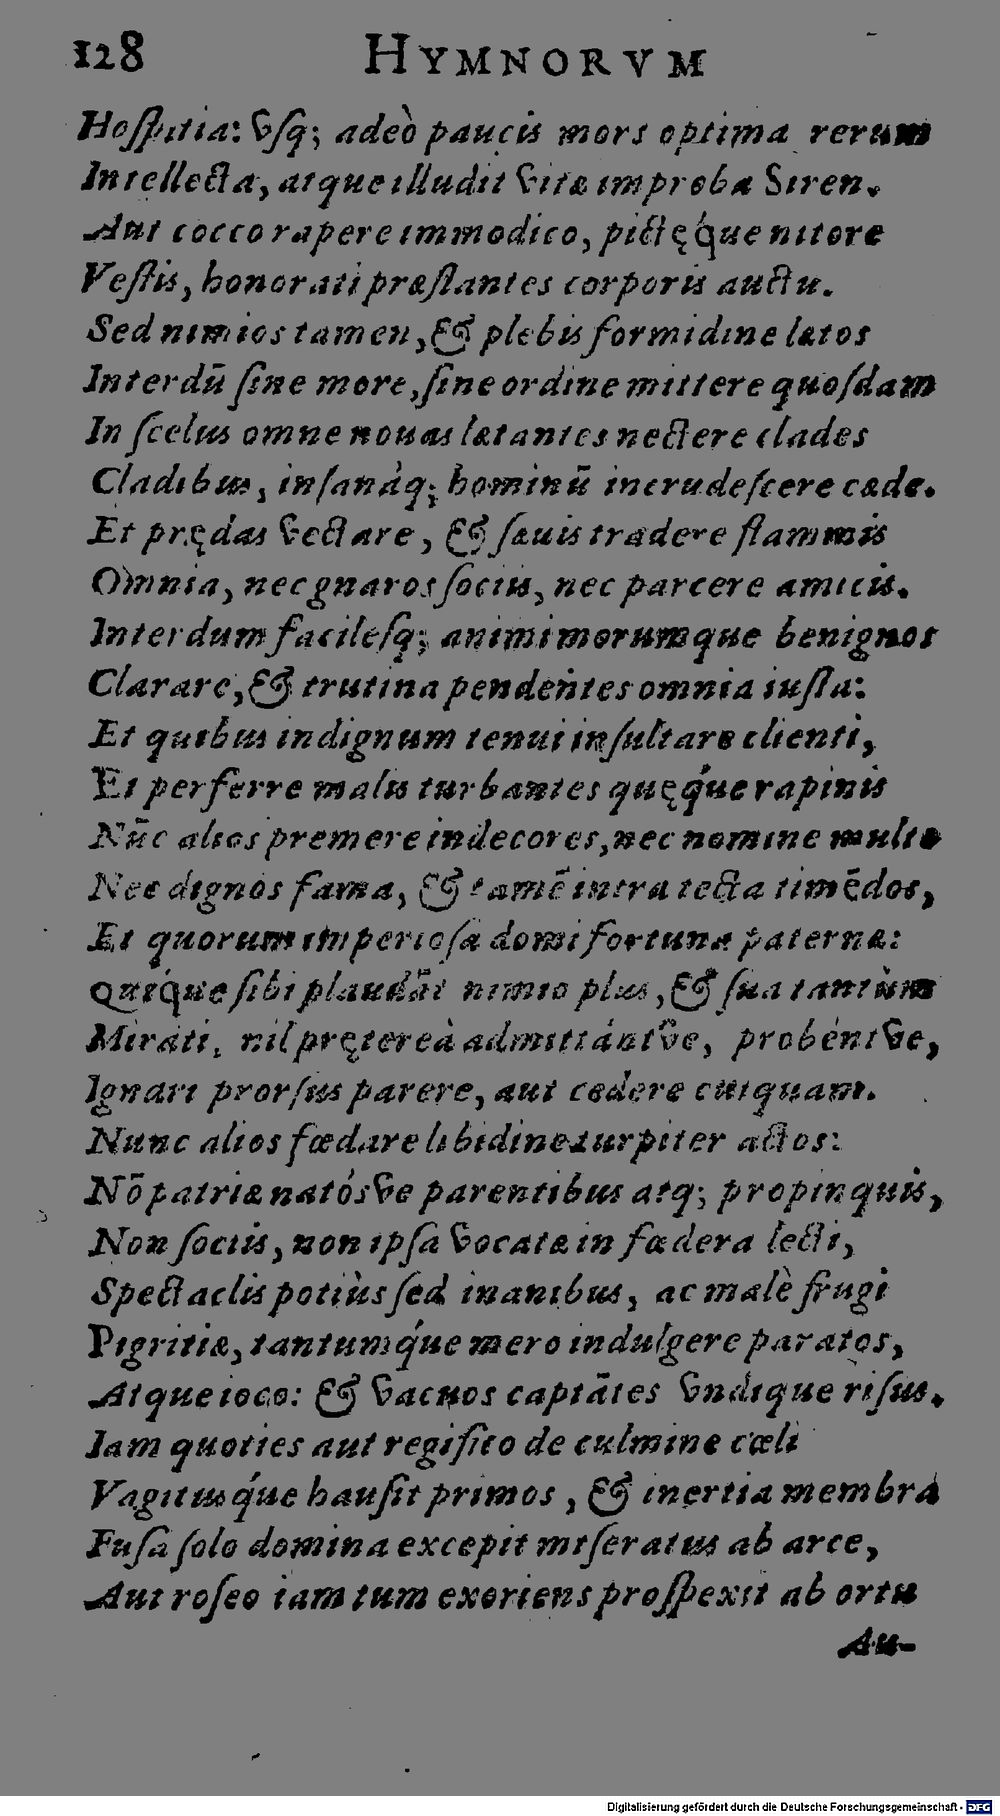 128 HYMNORVM
Hoſpitia: vſq; adeò paucis mors optima rerum
Intellecta, atque illudit vitæ improba Siren.
Aut cocco rapere immodico, pictęq́ue nitore
Veſtis, honorati præſtantes corporis auctu.
Sed nimios tamen, & plebis formidine lætos
Interdū ſine more, ſine ordine mittere quoſdam
In ſcelus omne nouas lætantes nectere clades
Cladibus, inſanáq; hominū incrudeſcere cæde.
Et prędas vectare, & ſæuis tradere flammis
Omnia, nec gnaros ſociis, nec parcere amicis.
Interdum facileſq; animi morumque benignos
Clarare, & trutina pendentes omnia iuſta:
Et quibus indignum tenui inſultare clienti,
Et perferre malis turbantes quęq́ue rapinis
Nūc alios premere indecores, nec nomine multo
Nec dignos fama, & tamē intra tecta timēdos,
Et quorum imperioſa domi fortuna paterna:
Quiq́ue ſibi plaudāt nimio plus, & ſua tantùm
Mirati, nil pręterea admittántve, probéntve,
Ignari prorſus parere, aut cedere cuiquam.
Nunc alios fœdare libidine turpiter actos:
Nō patriæ natósve parentibus atq; propinquis,
Non ſociis, non ipſa vocatæ in fœdera lecti,
Spectaclis potiùs ſed inanibus, ac malè frugi
Pigritiæ, tantumq́ue mero indulgere paratos,
Atque ioco: & vacuos captātes vndique riſus.
Iam quoties aut regifico de culmine cœli
Vagitusq́ue hauſit primos, & inertia membra
Fuſa ſolo domina excepit miſeratus ab arce,
Aut roſeo iam tum exoriens proſpexit ab ortu
Au-
Digitalisierung gefördert durch die Deutsche Forschungsgemeinschaft - DFG